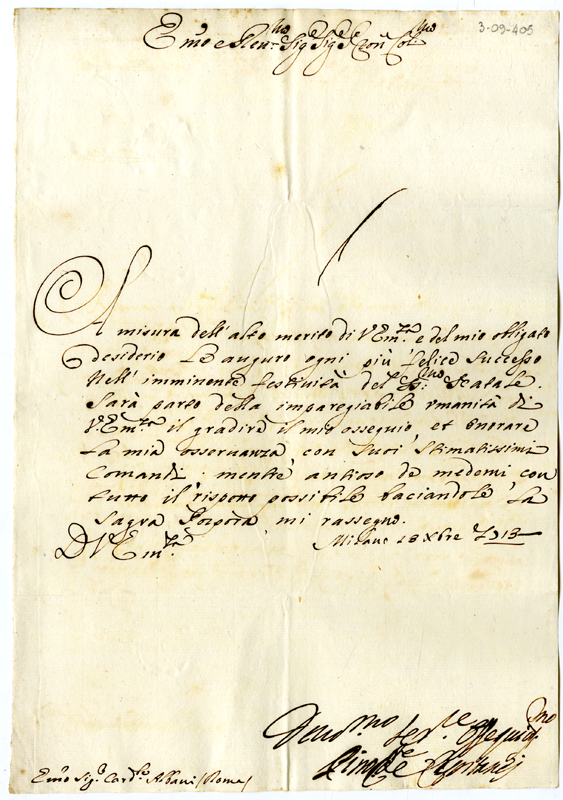 3-09-405
Emo e Reumo Sig.r Sig.r Pron Colmo
A misura dell'alto merito di V Em.za e del mio obligato
desiderio le auguro ogni più felice successo
nell'imminente festiuità del SS.mo Natale.
Sarà parto della impareggiabile vmanità di
V Em.za il gradire il mio ossequio, et honorare
la mia osseruanza con suoi stimatissimi
Comandi. mentre antioso de medemi con
tutto il rispetto possibile baciandole la
Sagra Porpora mi rassegno.
D V Em.za
Milano 18 Xbre 1713
Deuot.mo ser.re Ossequi.mo
Emo Sig.r Card.le Albani (Roma)